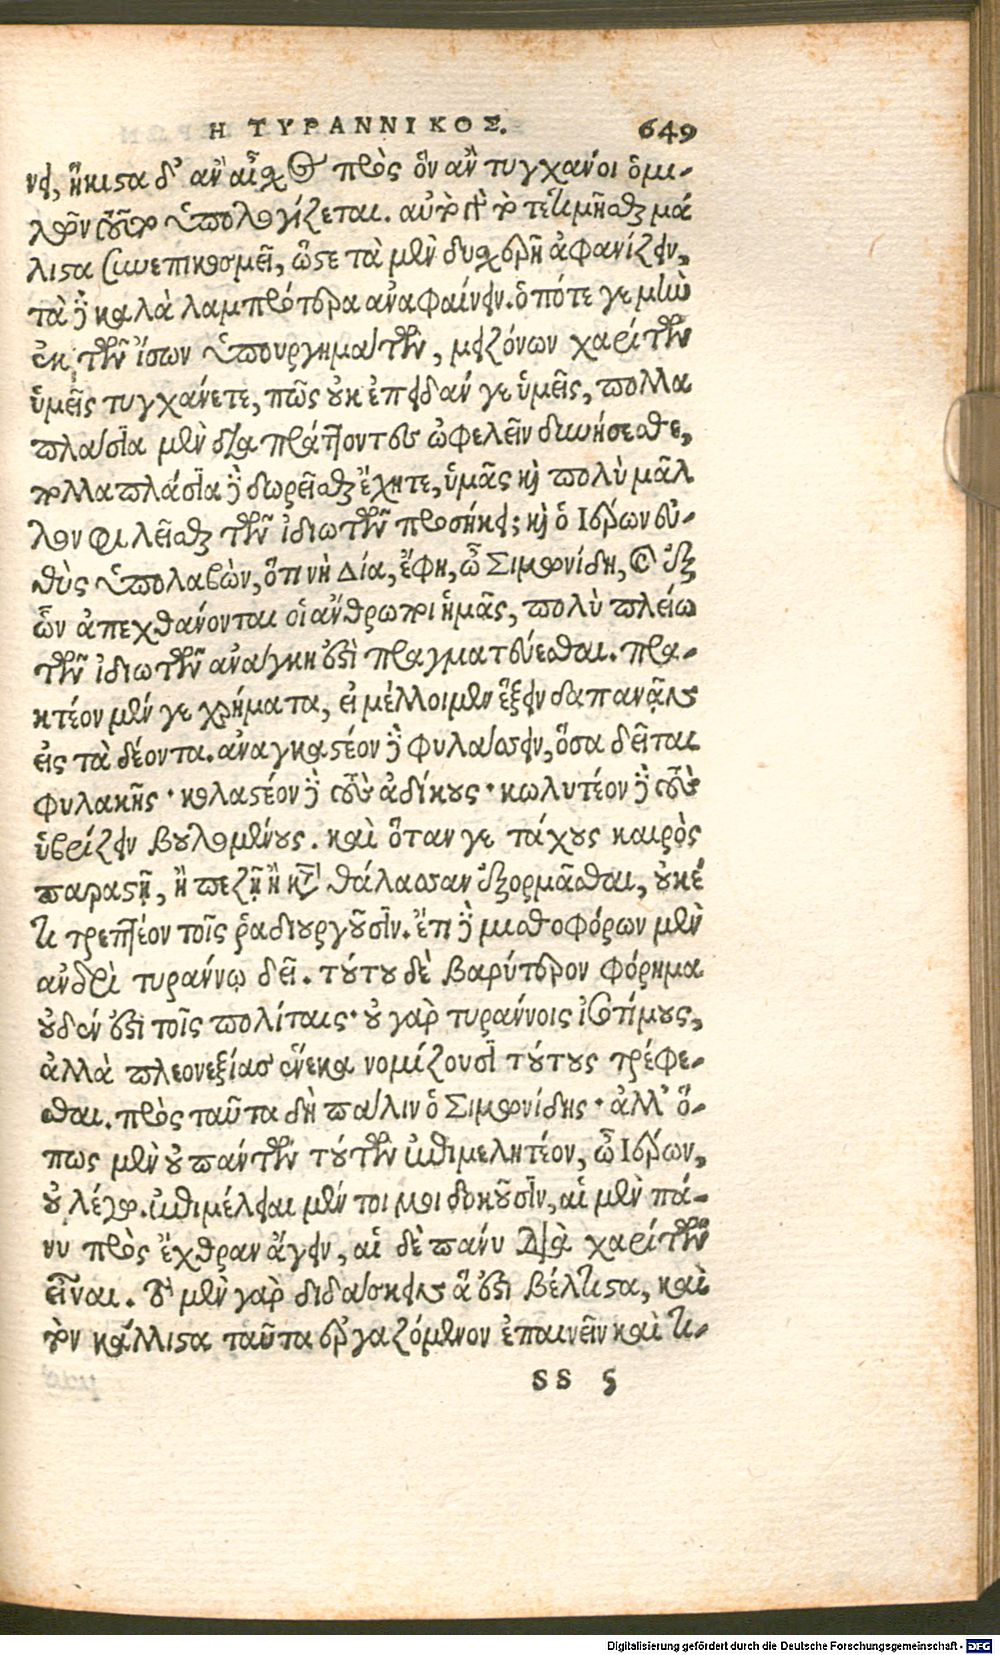 Η ΤΥΡΑΝΝΙΚΟΣ. 649
νει, ἥκιστα δ' ἂν αἶσχος πρὸς ὃν ἂν τυγχάνοι ὁμι-
λῶν τοῦτο ὑπολογίζεται. αὐτὸ γὰρ τὸ τετιμῆσθαι μά
λιστα συνεπικοσμεῖ, ὥστε τὰ μὲν δυσχερῆ ἀφανίζειν,
τὰ δὲ καλὰ λαμπρότερα ἀναφαίνειν. ὁπότε γε μὴν
ἐκ τῶν ἴσων ὑπουργημάτων, μειζόνων χαρίτων
ὑμεῖς τυγχάνετε, πῶς οὐκ ἐπειδάν γε ὑμεῖς, πολλα
πλάσια μὲν διαπράττοντες ὠφελεῖν δυνήσεσθε,
πολλαπλάσια δὲ δωρεῖσθαι ἔχητε, ὑμᾶς καὶ πολὺ μᾶλ
λον φιλεῖσθαι τῶν ἰδιωτῶν προσήκει; καὶ ὁ Ιέρων εὐ-
θὺς ὑπολαβὼν, ὅτι νὴ Δία, ἔφη, ὦ Σιμωνίδη, καὶ ἐξ
ὧν ἀπεχθάνονται οἱ ἄνθρωποι ἡμᾶς, πολὺ πλείω
τῶν ἰδιωτῶν ἀνάγκη ἐστὶ πραγματεύεσθαι. πρα-
κτέον μέν γε χρήματα, εἰ μέλλοιμεν ἕξειν δαπανᾷν
εἰς τὰ δέοντα. ἀναγκαστέον δὲ φυλάσσειν, ὅσα δεῖται
φυλακῆς · κολαστέον δὲ τοὺς ἀδίκους · κωλυτέον δὲ τοὺς
ὑβρίζειν βουλομένους. καὶ ὅταν γε τάχους καιρὸς
παραστῇ, ἢ πεζῇ ἢ κατὰ θάλασσαν ἐξορμᾶσθαι, οὐκέ
τι τρεπτέον τοῖς ῥᾳδιουργοῦσιν. ἔτι δὲ μισθοφόρων μὲν
ἀνδρὶ τυράννῳ δεῖ. τούτου δὲ βαρύτερον φόρημα
οὐδέν ἐστι τοῖς πολίταις · οὐ γὰρ τυράννοις ἰσοτίμους,
ἀλλὰ πλεονεξίας ἕνεκα νομίζουσι τούτους τρέφε-
σθαι. πρὸς ταῦτα δὴ πάλιν ὁ Σιμωνίδης · ἀλλ' ὅ-
πως μὲν οὐ πάντων τούτων ἐπιμελητέον, ὦ Ιέρων,
οὐ λέγω. ἐπιμέλειαι μέν τοι μοι δοκοῦσιν, αἱ μὲν πά-
νυ πρὸς ἔχθραν ἄγειν, αἱ δὲ πάνυ διὰ χαρίτων
εἶναι. τὸ μὲν γὰρ διδάσκειν ἅ ἐστι βέλτιστα, καὶ
τὸν κάλλιστα ταῦτα ἐργαζόμενον ἐπαινεῖν καὶ τι-
SS 5
Digitalisierung gefördert durch die Deutsche Forschungsgemeinschaft - DFG